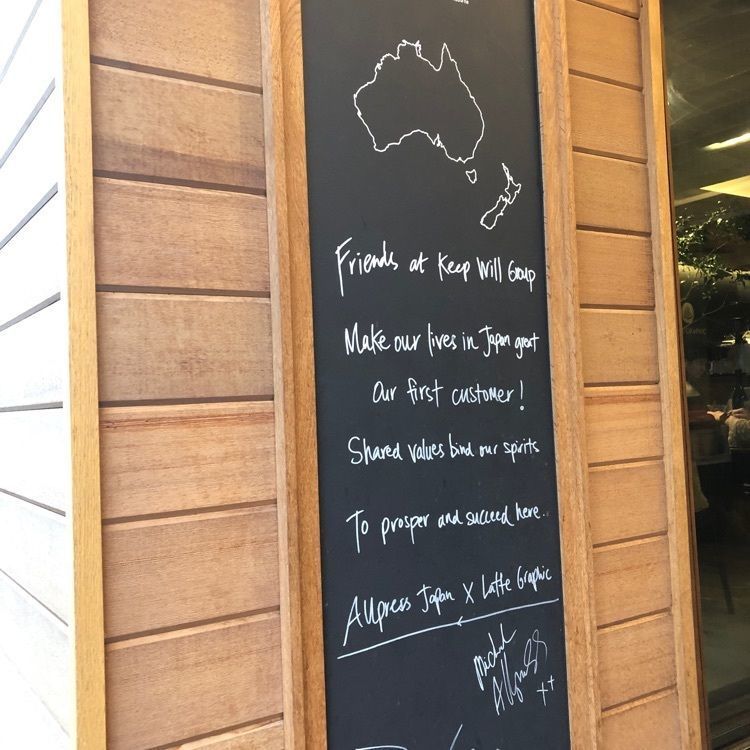 Friends at Keep Will Group
Make our lives in Japan great
Our first customer!
Shared values bind our spirits
To prosper and succeed here..
Allpress Japan X Latte Graphic
Michael
Allpress
++